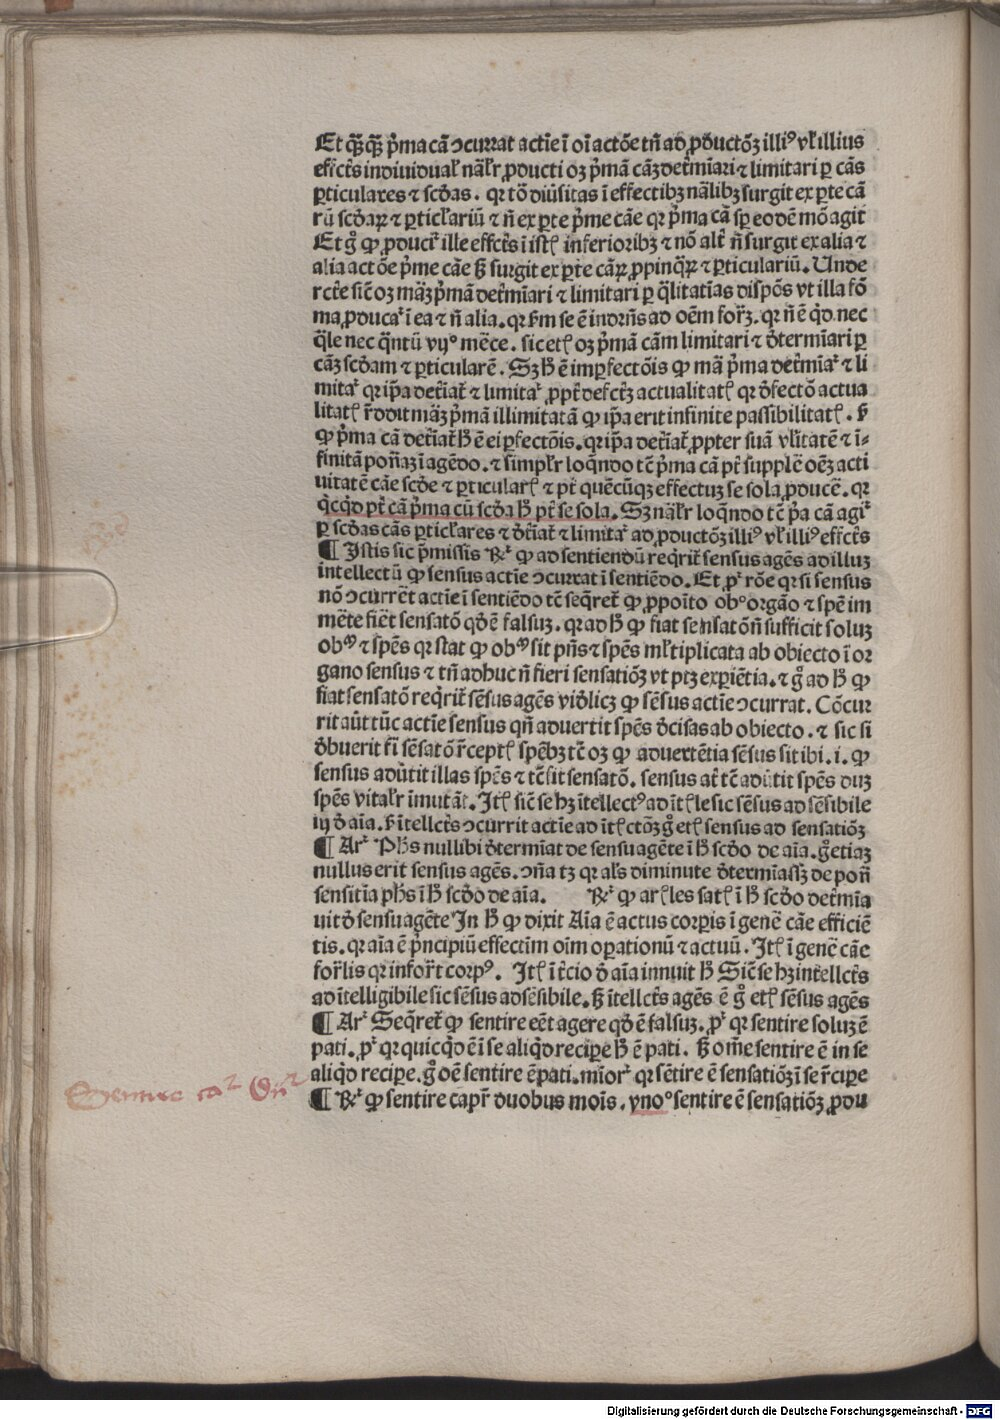 Et qͣꝫqͣꝫ p̄ma cā ↄcurrat actīe ī oī actōe tn̄ ad ꝓductōꝫ illiꝰ vł illius
effct̄s indiuidual' nāl'r ꝓducti oꝫ p̄mā cāꝫ det̄mīari ⁊ limitari ꝑ cās
ꝑticulares ⁊ scd̄as . qꝛ tō diu̓sitas ī effectibꝫ nālibꝫ surgit ex ꝑte cā
rū scd̄aꝝ ⁊ ꝑticl'ariū ⁊ n̄ ex ꝑte p̄me cāe qꝛ p̄ma cā sꝑ eodē mō agit
Et gͦ ꝙ ꝓducit' ille effct̄s ī istꝭ inferioribꝫ ⁊ nō alt̓ n̄ surgit ex alia ⁊
alia actōe p̄me cāe sꝫ surgit ex ꝑte cāꝝ ꝓpinqͣꝝ ⁊ ꝑticulariū . Unde
rct̄e sic̄ oꝫ māꝫ p̄mā det̄mīari ⁊ limitari ꝑ q̄litatīas dispōes vt illa fō
ma ꝓducat' ī ea ⁊ n̄ alia . qꝛ sm̄ se ē indrn̄s ad oēm for̄ꝫ . qꝛ n̄ ē qd̄ nec
q̄le nec q̄ntū vijͦ mēce . sic etꝭ oꝫ p̄mā cām limitari ⁊ d̓termīari ꝑ
cāꝫ scd̄am ⁊ ꝑticularē . Sꝫ h̄ ē imꝑfectōis ꝙ mā p̄ma det̄mīat' ⁊ li
mitat' qꝛ ip̄a det̓iat' ⁊ limitat' ꝓpt̓ defct̄ꝫ actualitatꝭ qꝛ d̓fectō actua
litatꝭ r̄ddit māꝫ p̄mā illimitatā ꝙ ip̄a erit infinite passibilitatꝭ . sꝫ
ꝙ p̄ma cā det̓iat' h̄ ē ei ꝑfectōis . qꝛ ip̄a det̓iat' ꝓpter suā vl'itatē ⁊ ī-
finitā pon̄aꝫ ī agēdo . ⁊ simpl'r loq̄ndo tē p̄ma cā pt̄ supplē oēꝫ acti
uitatē cāe scd̄e ⁊ ꝑticularꝭ ⁊ pt̄ quēcūqꝫ effectuꝫ se sola ꝓducē . qꝛ
qͥcqͥd pt̄ cā p̄ma cū scd̄a h̄ pt̄ se sola . Sꝫ nāl'r loq̄ndo tē p̄a cā agit'
ꝑ scd̄as cās ꝑticl'ares ⁊ d̓t̓iat' ⁊ limitat' ad ꝓductōꝫ illiꝰ vł illiꝰ effct̄s
¶ Istis sic p̄missis ℞' ꝙ ad sentiendū reqͥrit' sensus agēs ad illuꝫ
intellectū ꝙ sensus actīe ↄcurrat ī sentiēdo . Et pꝫ' rōe qꝛ si sensus
nō ↄcurrēt actīe ī sentiēdo tē seq̄ret' ꝙ ꝓpoīto obͦ orgāo ⁊ spē im
mēte fiēt sensatō qd̄ ē falsuꝫ . qꝛ ad h̄ ꝙ fiat sensatō n̄ sufficit soluꝫ
obᵐ ⁊ spēs qꝛ stat ꝙ obᵐ sit pn̄s ⁊ spēs ml'tiplicata ab obiecto ī or
gano sensus ⁊ tn̄ adhuc n̄ fieri sensatiōꝫ vt ptꝫ exꝑiētia . ⁊ gͦ ad h̄ ꝙ
fiat sensatō reqͥrit' sēsus agēs vid̓licꝫ ꝙ sēsus actīe ↄcurrat . Cōcur
rit aūt tūc actīe sensus qn̄ aduertit spēs d̓cisas ab obiecto . ⁊ sic si
d̓buerit fi̓ sēsatō r̄ceptꝭ spēbꝫ tē oꝫ ꝙ aduertētia sēsus sit ibi . i . ꝙ
sensus adu̓tit illas spēs ⁊ tē sit sensatō . sensus at̄ tē adu̓tit spēs duꝫ
spēs vital'r īmutāt . Itꝭ sic̄ se hꝫ ītellectꝰ ad īt̄ le sic sēsus ad sēsibile
iij d̓ aīa . sꝫ ītellct̄s ↄcurrit actīe ad ītꝭctōꝫ gͦ etꝭ sensus ad sensatiōꝫ
¶ Ar' Ph̄s nullibi d̓termīat de sensu agēte ī h̄ scd̄o de aīa . gͦ etiaꝫ
nullus erit sensus agēs . ↄn̄a tꝫ qꝛ al's diminute d̓termīassꝫ de pon̄
sensitīa ph̄s ī h̄ scd̄o de aīa . ℞' ꝙ arꝭles satꝭ ī h̄ scd̄o det̄mīa
uit d̓ sensu agēte In h̄ ꝙ dixit Aīa ē actus corꝑis ī genē cāe efficiē
tis . qꝛ aīa ē p̄ncipiū effectīm oīm oꝑationū ⁊ actuū . Itꝭ ī genē cāe
for̄lis qꝛ infor̄t corpꝰ . Itꝭ ī t̓cio d̓ aīa innuit h̄ Sic̄ se hꝫ intellct̄s
ad ītelligibile sic sēsus ad sēsibile . sꝫ ītellct̄s agēs ē gͦ etꝭ sēsus agēs
¶ Ar' Seq̄ret' ꝙ sentire eēt agere qd̄ ē falsuꝫ . pꝫ' qꝛ sentire soluꝫ ē
pati . pꝫ' qꝛ quicqͥd ē ī se aliqͥd reciꝑe h̄ ē pati . sꝫ om̄e sentire ē in se
aliqͥd reciꝑe . gͦ oē sentire ē pati . mīor' qꝛ sētire ē sensatiōꝫ ī se r̄ciꝑe
¶ ℞' ꝙ sentire capr̄ duobus mois . vnoͦ sentire ē sensatiōꝫ ꝓdu
Digitalisierung gefördert durch die Deutsche Forschungsgemeinschaft - DFG